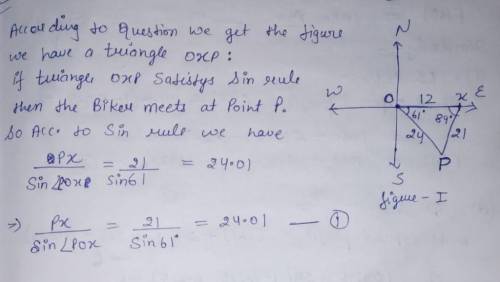 According to Question we get the figure
we have a triangle OXP:
if triangle OXP Satisfys Sin rule
then the Biker meets at Point P.
So Acc. to Sin rule we have
PX / Sin∠POX = 21 / sin61 = 24.01
⇒ PX / Sin∠POX = 21 / Sin 61° = 24.01 — ①
N
W O 12 X E
61° 89°
24 21
P
S
figure - I